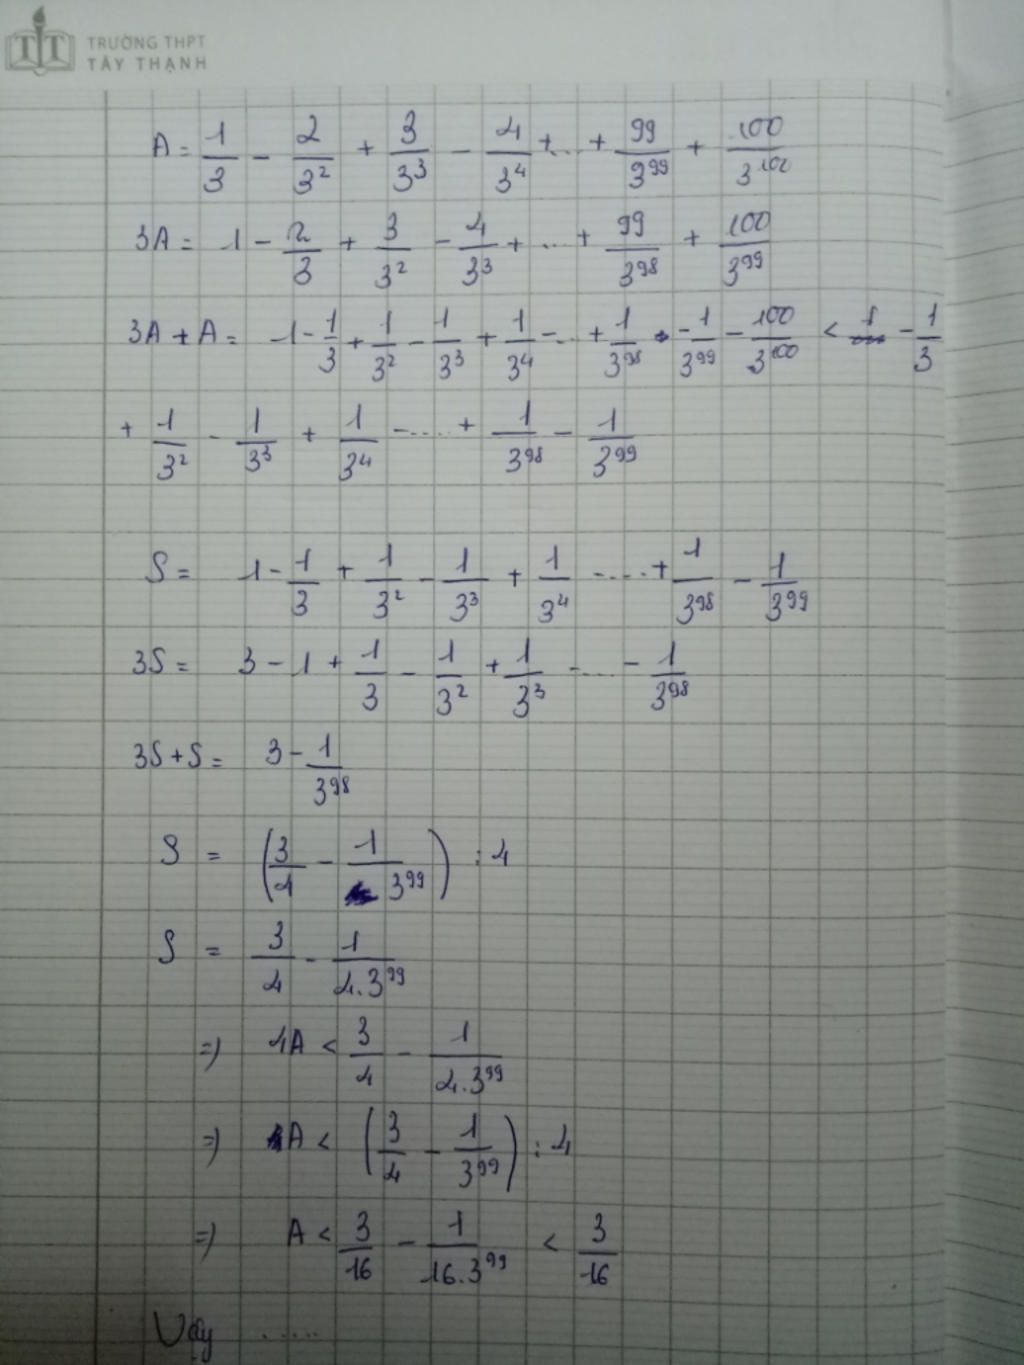 TRƯỜNG THPT
TÂY THẠNH
A = 1/3 - 2/3² + 3/3³ - 4/3⁴ + ... + 99/3⁹⁹ + 100/3¹⁰⁰
3A = 1 - 2/3 + 3/3² - 4/3³ + ... + 99/3⁹⁸ + 100/3⁹⁹
3A + A = 1 - 1/3 + 1/3² - 1/3³ + 1/3⁴ - ... + 1/3⁹⁸ - 1/3⁹⁹ - 100/3¹⁰⁰ < 1 - 1/3
+ 1/3² - 1/3³ + 1/3⁴ - .... + 1/3⁹⁸ - 1/3⁹⁹
S = 1 - 1/3 + 1/3² - 1/3³ + 1/3⁴ - .... + 1/3⁹⁸ - 1/3⁹⁹
3S = 3 - 1 + 1/3 - 1/3² + 1/3³ - .... - 1/3⁹⁸
3S + S = 3 - 1/3⁹⁸
S = (3/4 - 1/3⁹⁹) : 4
S = 3/4 - 1/4.3⁹⁹
=) 4A < 3/4 - 1/4.3⁹⁹
=) A < (3/4 - 1/3⁹⁹) : 4
=) A < 3/16 - 1/16.3⁹⁹ < 3/16
Vậy .....